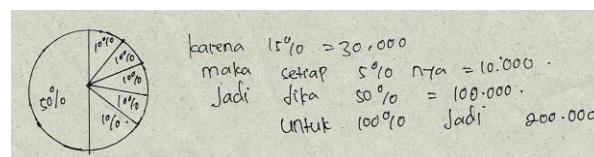 10%
10%
10%
10%
10%.
50%
karena 15% = 30.000
maka setiap 5% nya = 10.000.
Jadi Jika 50% = 100.000.
Untuk 100% Jadi 200.000